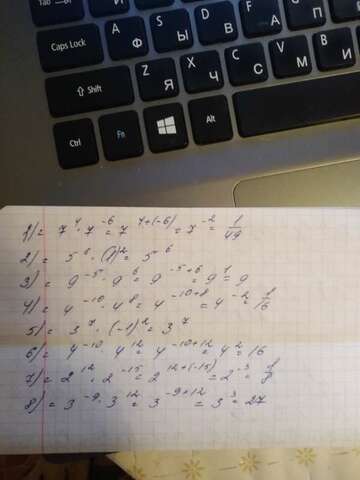 Tab
Caps Lock A Ф S Ы D В F А
Shift Z Я X Ч C С V М B И
Ctrl Fn Alt
1) = 7⁴ · 7⁻⁶ = 7⁴⁺⁽⁻⁶⁾ = 7⁻² = 1/49
2) = 5⁶ · (1)² = 5⁶
3) = 9⁻⁵ · 9⁶ = 9⁻⁵⁺⁶ = 9¹ = 9
4) = 4⁻¹⁰ · 4⁸ = 4⁻¹⁰⁺⁸ = 4⁻² = 1/16
5) = 3⁷ · (-1)² = 3⁷
6) = 4⁻¹⁰ · 4¹² = 4⁻¹⁰⁺¹² = 4² = 16
7) = 2¹² · 2⁻¹⁵ = 2¹²⁺⁽⁻¹⁵⁾ = 2⁻³ = 1/8
8) = 3⁻⁹ · 3¹² = 3⁻⁹⁺¹² = 3³ = 27